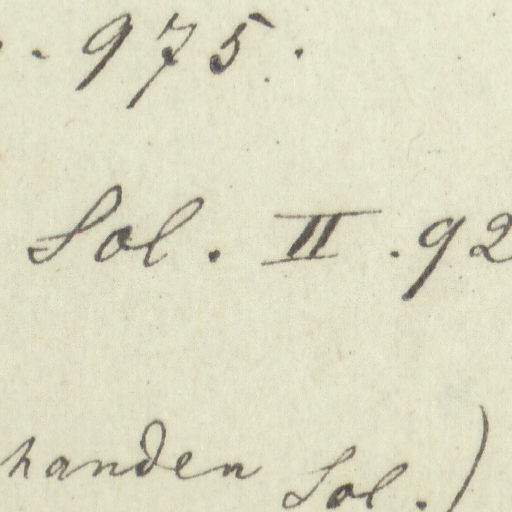 . 975.
Sol. II. 92
handen Sol.)